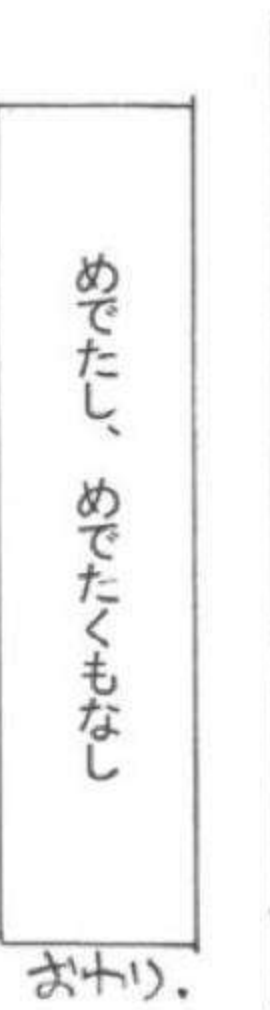 めでたし、 めでたくもなし
おわり.